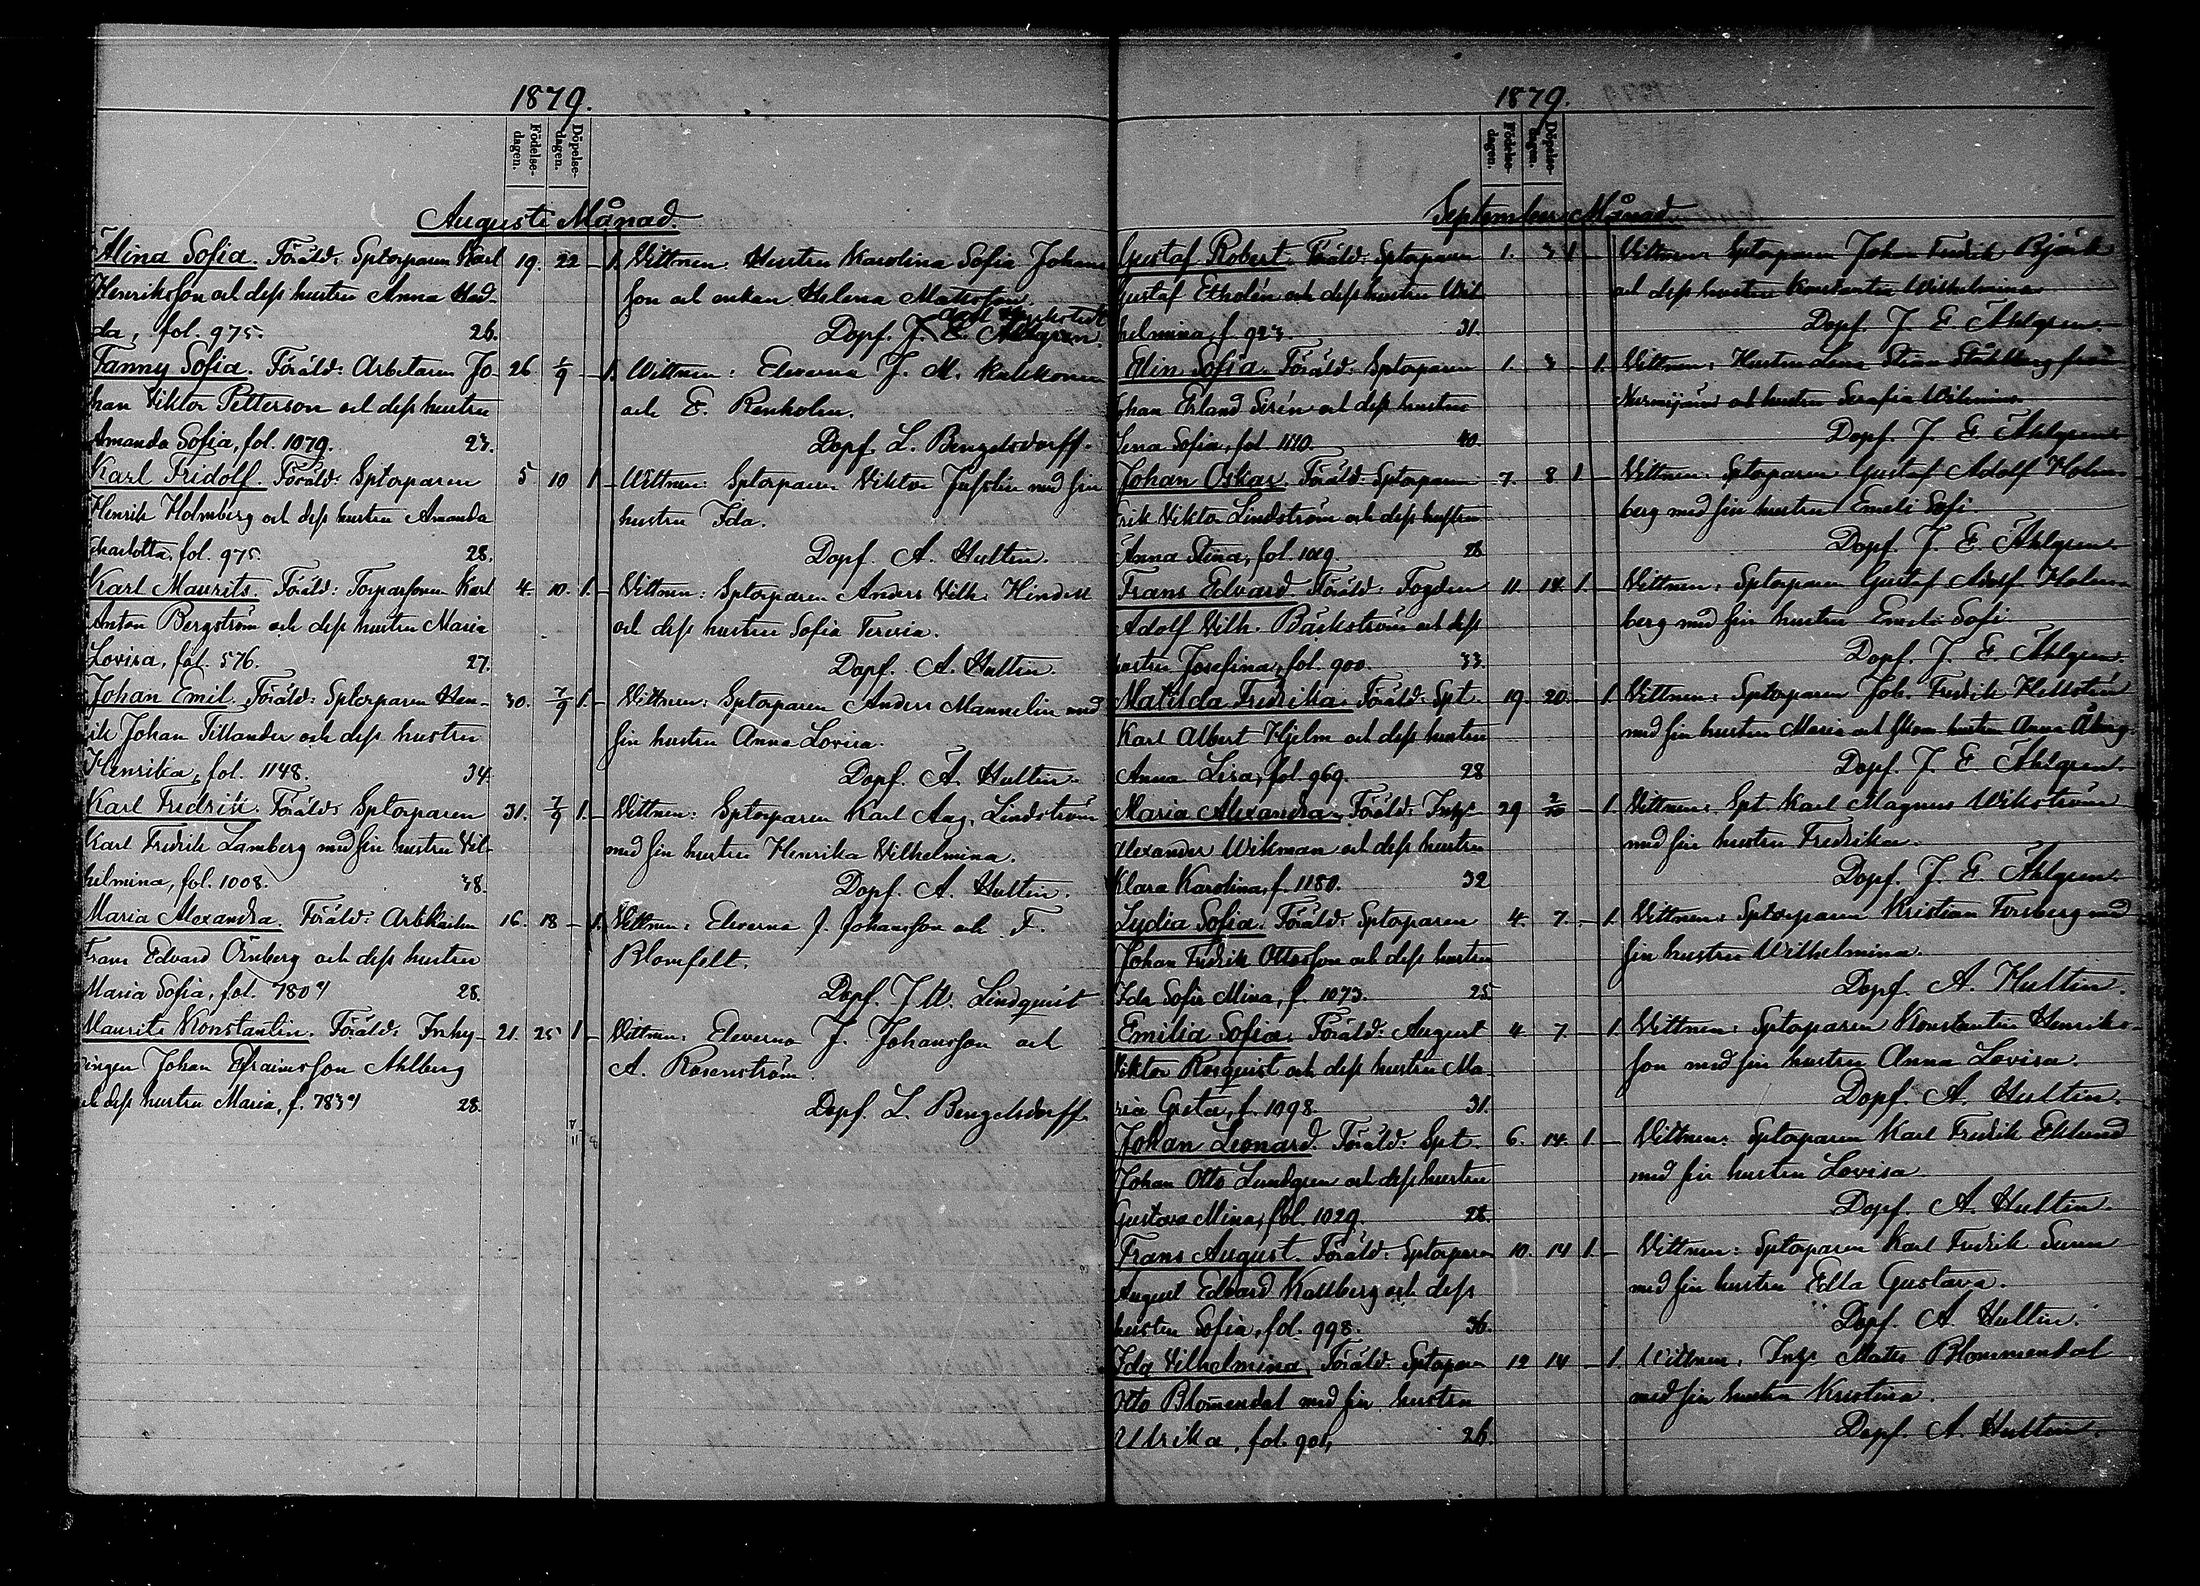 1879.
Födelse-
dagen.
Döpelse-
dagen.
Augusti Månad.
Alina Sofia. Föräld: Sptorparen Karl 19. 22 — 1. Vittnen: Hustru Karolina Sofia Johans
Henriksson och dess hustru Anna Had- son och enkan Helena Matsson.
da, fol. 975. 26. Döpf. J. E. Ahlgren.
Fanny Sofia. Föräld: Arbetaren Jo- 26 1/9 — 1. Vittnen: Eleverna J. M.
han Viktor Petterson och dess hustru och E. Renholm.
Amanda Sofia, fol. 1079. 23. Döpf. L. Bengelsdorff.
Karl Fridolf. Föräld: Sptorparen 5 10 1 — Vittnen: Sptorparen Viktor med sin
Henrik Holmberg och dess hustru Amanda hustru Ida.
Charlotta, fol. 975. 28. Döpf. A. Hultin.
Karl Maurits. Föräld: Torparsonen Karl 4 10. 1. — Vittnen: Sptorparen Anders Vilh.
Anton Bergström och dess hustru Maria och dess hustru Sofia
Lovisa, fol. 576. 27. Döpf. A. Hultin.
Johan Emil. Föräld: Sptorparen Hen- 30. 7/9 1. — Vittnen: Sptorparen Anders Mannelin med
rik Johan Tillander och dess hustru sin hustru Anna Lovisa.
Henrika, fol. 1148. 34. Döpf. A. Hultin.
Karl Fredrik. Föräld: Sptorparen 31. 7/9 1. — Vittnen: Sptorparen Karl Aug. Lindström
Karl Fredrik Lamberg med sin hustru Vil- med sin hustru Henrika Vilhelmina.
helmina, fol. 1008. 38. Döpf. A. Hultin.
Maria Alexandra. Föräld: 16. 18 — 1. Vittnen: Eleverna J. Johansson och F.
Frans Edvard Örnberg och dess hustru Blomfelt.
Maria Sofia, fol. 28. Döpf. J. W. Lindquist
Maurits Konstantin. Föräld: Inhy- 21. 25 1 — Vittnen: Eleverna J. Johansson och
singen Johan Efraimsson Ahlberg A. Rosenström.
och dess hustru Maria, f. 28. Döpf. L. Bengelsdorff.
1879.
Födelse-
dagen.
Döpelse-
dagen.
September Månad.
Gustaf Robert. Föräld: Sptorparen 1. 3 1 — Vittnen: Sptorparen Johan Fredrik Björk
Gustaf Etholén och dess hustru Wil- och dess hustru Konstantia Wilhelmina.
helmina, f. 923. 31. Döpf. J. E. Ahlgren.
Elin Sofia. Föräld: Sptorparen 1. 3 — 1. Vittnen: Hustru Lena Stina Ståhlberg från
Johan Erland Sirén och dess hustru Nurmijärvi och hustru Serafia Wilmina.
Lena Sofia, fol. 1110. 40. Döpf. J. E. Ahlgren.
Johan Oskar. Föräld: Sptorparen 7. 8 1 — Vittnen: Sptorparen Gustaf Adolf Holm-
Erik Viktor Lindström och dess hustru berg med sin hustru Emeli Sofi.
Anna Stina, fol. 1019. 28 Döpf. J. E. Ahlgren.
Frans Edvard. Föräld: Fogden 11. 14. 1. — Vittnen: Sptorparen Gustaf Adolf Holm
Adolf Vilh. Bäckström och dess berg med sin hustru Emeli Sofi.
hustru Josefina, fol. 900. 33. Döpf. J. E. Ahlgren.
Matilda Fredrika. Föräld: Spt. 19. 20. — 1. Vittnen: Sptorparen Joh. Fredrik Hellstén
Karl Albert Hjelm och dess hustru med sin hustru Maria och hustru Anna
Anna Lisa, fol. 969. 28 Döpf. J. E. Ahlgren.
Maria Alexandra. Föräld: Inhys 29 2/10 — 1. Vittnen: Spt. Karl Magnus Wikström
Alexander Wikman och dess hustru med sin hustru Fredrika.
Klara Karolina, f. 1180. 32 Döpf. J. E. Ahlgren.
Lydia Sofia. Föräld: Sptorparen 4. 7. — 1. Vittnen: Sptorparen Kristian Forsberg med
Johan Fredrik Ottosson och dess hustru sin hustru Wilhelmina.
Ida Sofia Mina, f. 1073. 25 Döpf. A. Hultin.
Emilia Sofia. Föräld: August 4. 7. — 1. Vittnen: Sptorparen Konstantin Henriks-
Viktor Rosquist och dess hustru Ma- son med sin hustru Anna Lovisa.
ria Greta, f. 1098. 31. Döpf. A. Hultin.
Johan Leonard. Föräld: Spt. 6. 14. 1. — Vittnen: Sptorparen Karl Fredrik Eklund
Johan Otto Lundgren och dess hustru med sin hustru Lovisa
Gustava Mina, fol. 1029. 28. Döpf. A. Hultin.
Frans August. Föräld: Sptorparen 10. 14 1. — Vittnen: Sptorparen Karl Fredrik
August Edvard Kallberg och dess med sin hustru Edla Gustava.
hustru Sofia, fol. 998. 36. Döpf. A. Hultin.
Ida Vilhelmina. Föräld: Sptorparen 12 14 — 1. Vittnen: Inhys. Mats Blommendal
Otto Blomendal med sin hustru med sin hustru Kristina.
Ulrika, fol. 901, 26. Döpf. A. Hultin.